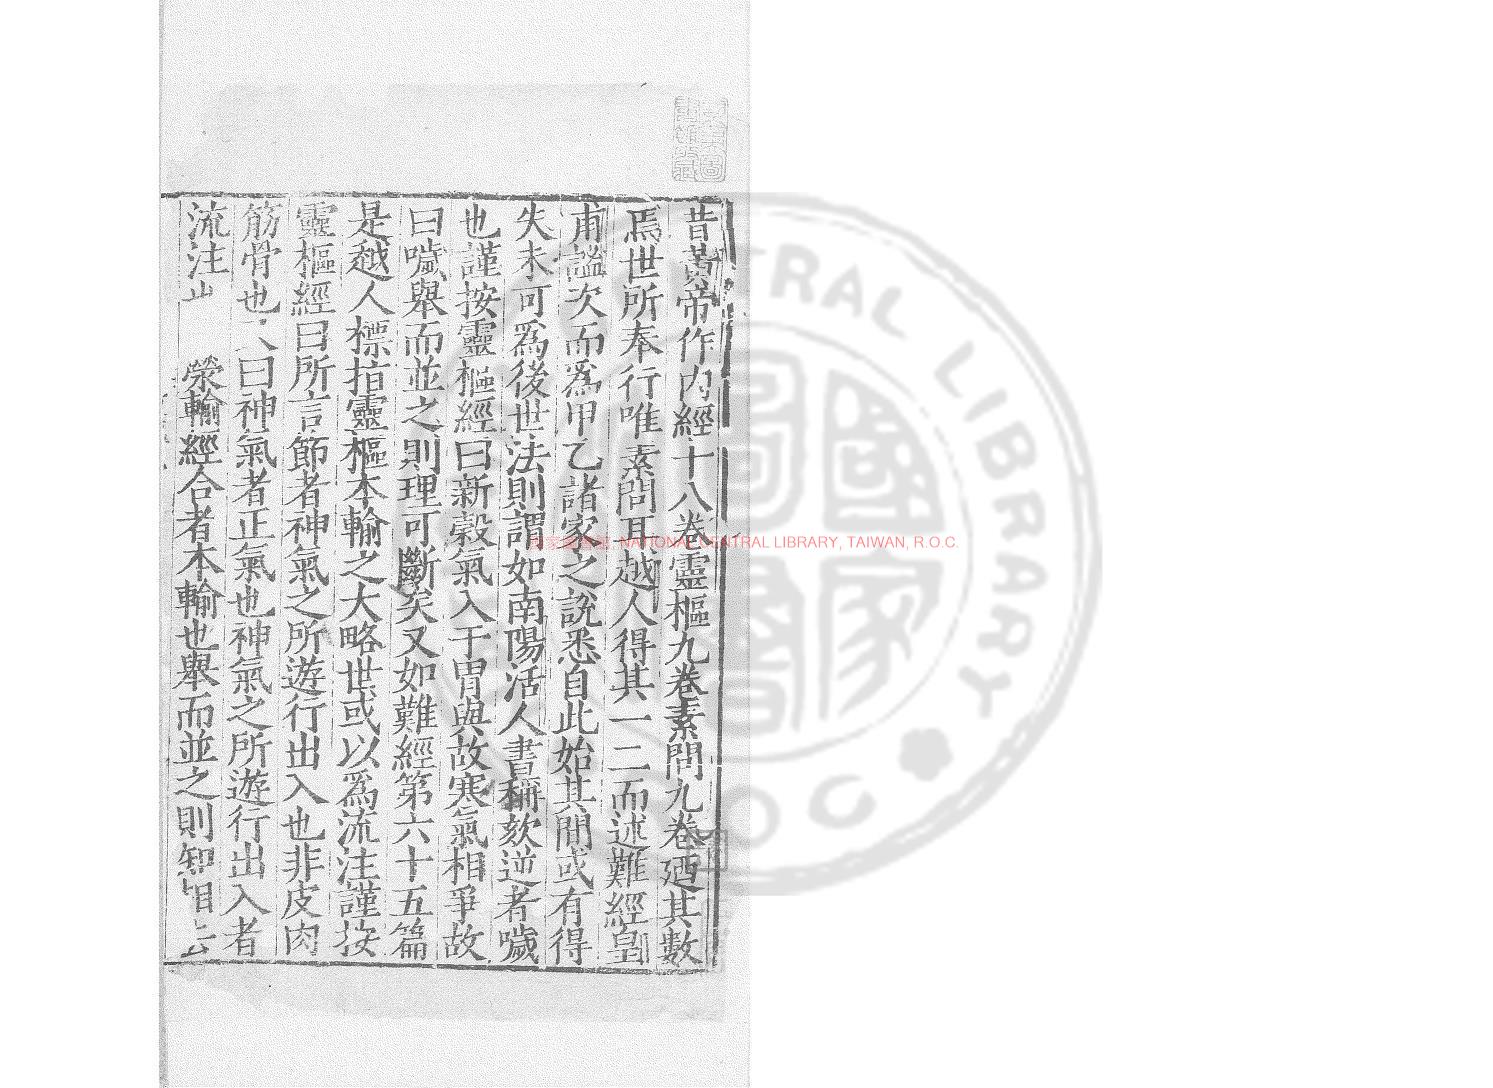 昔黃帝作內經十八卷靈樞九卷素問九卷廼其數
焉世所奉行唯素問耳越人得其一二而述難經皇
甫謐次而爲甲乙諸家之說悉自此始其間或有得
失未可爲後世法則謂如南陽活人書稱欬逆者噦
也謹按靈樞經曰新穀氣入于胃與故寒氣相爭故
曰噦舉而並之則理可斷矣又如難經第六十五篇
是越人標指靈樞本輸之大略世或以爲流注謹按
靈樞經曰所言節者神氣之所遊行出入也非皮肉
筋骨也又曰神氣者正氣也神氣之所遊行出入者
流注也 滎輸經合者本輸也舉而並之則知相去
國家圖書館, NATIONAL CENTRAL LIBRARY, TAIWAN, R.O.C.
CENTRAL LIBRARY
R.O.C
國家圖書